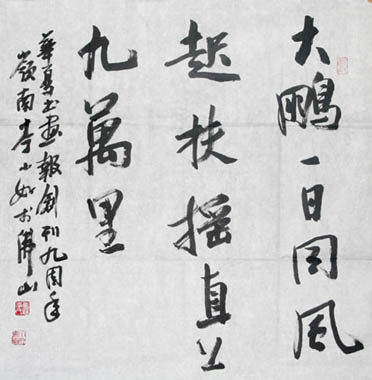 大鵬一日同風
起扶摇直上
九萬里
華夏书画報創刊九周年
嶺南李小如於佛山